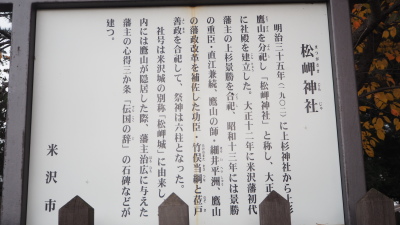 松岬神社
まつがさき じんじゃ
明治三十五年(一九〇二)に上杉神社から上杉
鷹山を分祀し「松岬神社」と称し、大正
に社殿を建立した。大正十二年に米沢藩初代
藩主の上杉景勝を合祀、昭和十三年には景勝
の重臣・直江兼続、鷹山の師・細井平洲、鷹山
の藩政改革を補佐した功臣・竹俣当綱と莅戸
善政を合祀して、祭神は六柱となった。
社号は米沢城の別称「松岬城」に由来し
内には鷹山が隠居した際、藩主治広に与えた
藩主の心得三か条「伝国の辞」の石碑などが
建つ。
米沢市